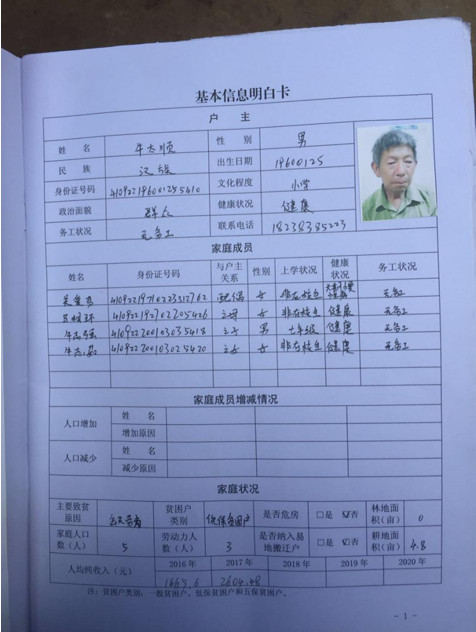 基本信息明白卡
户 主
姓 名 牛大顺 性 别 男
民 族 汉族 出生日期 19600125
身份证号码 文化程度 小学
政治面貌 群众 健康状况 健康
务工状况 无务工 联系电话 18238385223
家庭成员
姓名 身份证号码 与户主关系 性别 上学状况 健康状况 务工状况
配偶 女 非在校生 无务工
女 非在校生 健康 无务工
之子 男 七年级 健康 无务工
之女 女 非在校生 健康 无务工
家庭成员增减情况
人口增加 姓 名
增加原因
人口减少 姓 名
减少原因
家庭状况
主要致贫原因 贫困户类别 低保贫困户 是否危房 □是 ☑否 林地面积(亩) 0
家庭人口数(人) 5 劳动力人数(人) 3 是否纳入易地搬迁户 □是 ☑否 耕地面积(亩) 4.8
人均纯收入(元) 2016 年 2017 年 2018 年 2019 年 2020 年
2604.48
注:贫困户类别:一般贫困户、低保贫困户和五保贫困户。
- 1 -